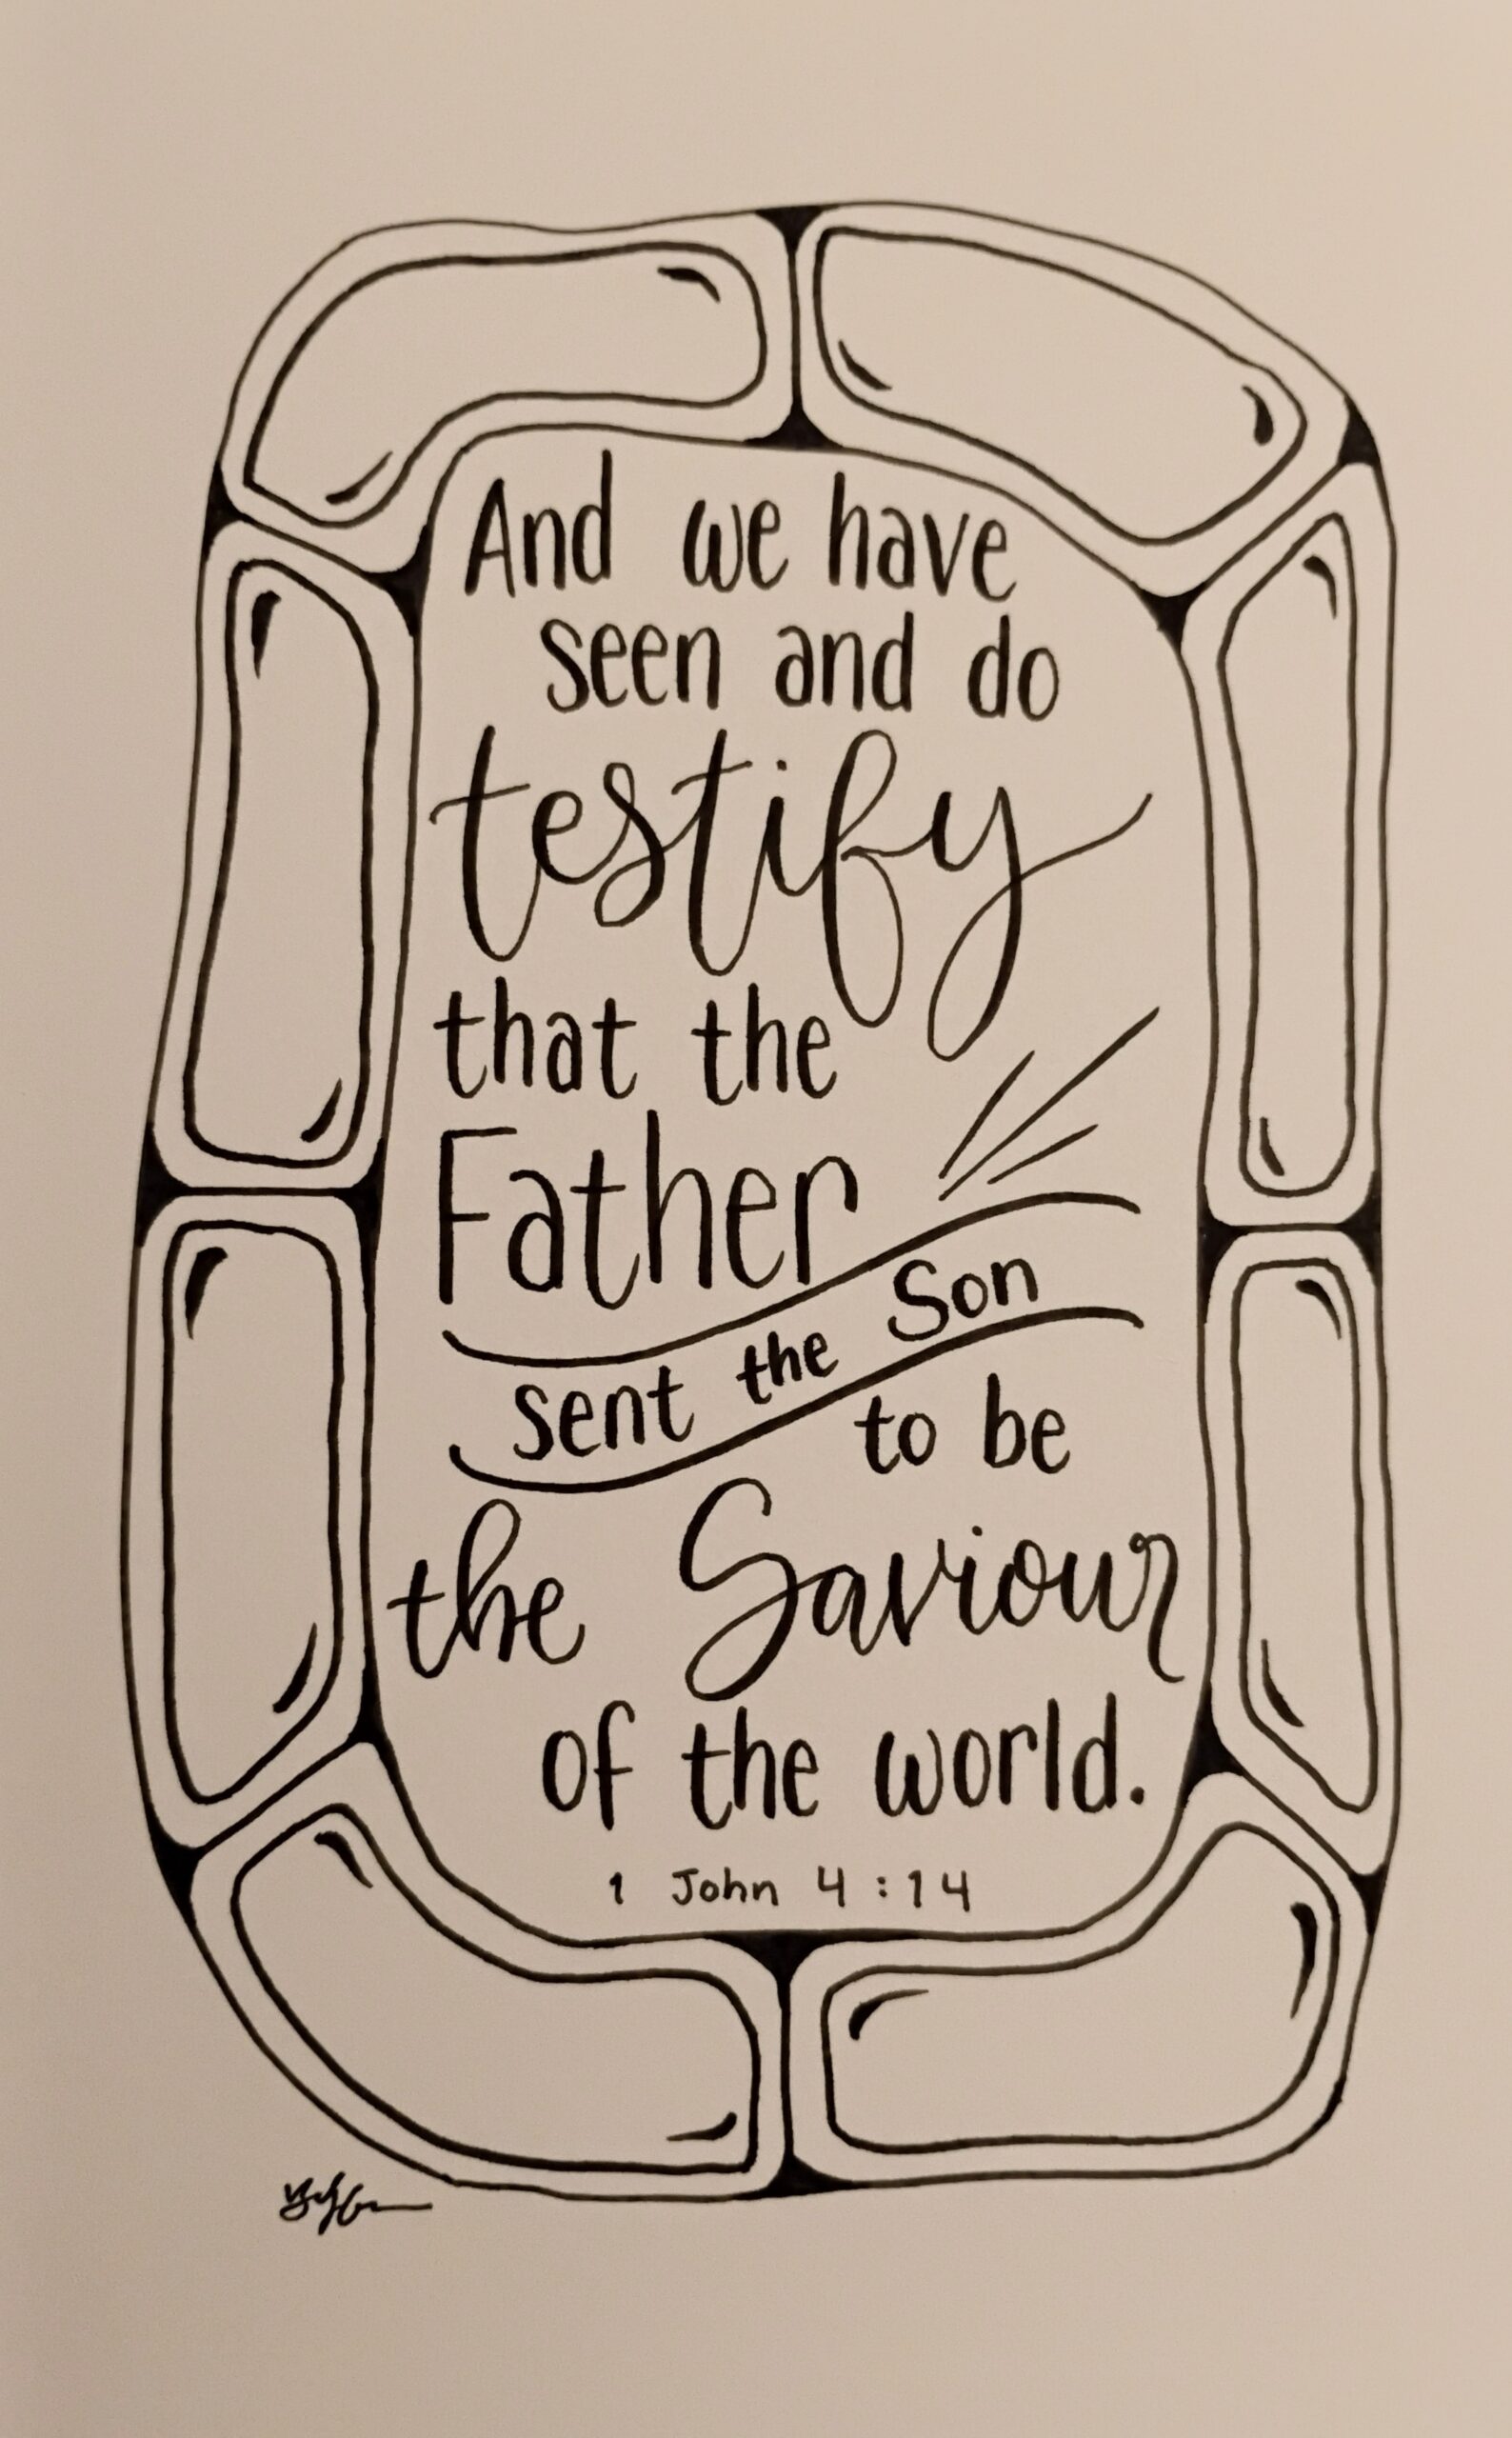 And we have
seen and do
testify
that the
Father
sent the Son
to be
the Saviour
of the world.
1 John 4:14